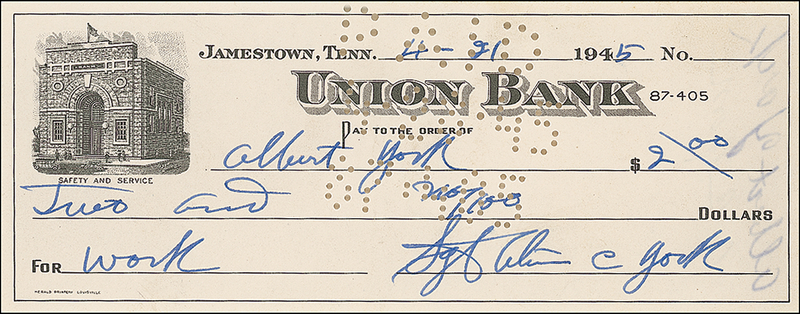 Jamestown, Tenn. 4-21 1945 No.
Union Bank 87-405
Pay to the order of
Albert York $2 00
Two and no/100 Dollars
Safety and Service
For work Sgt Alvin C York
Herald Printery Louisville